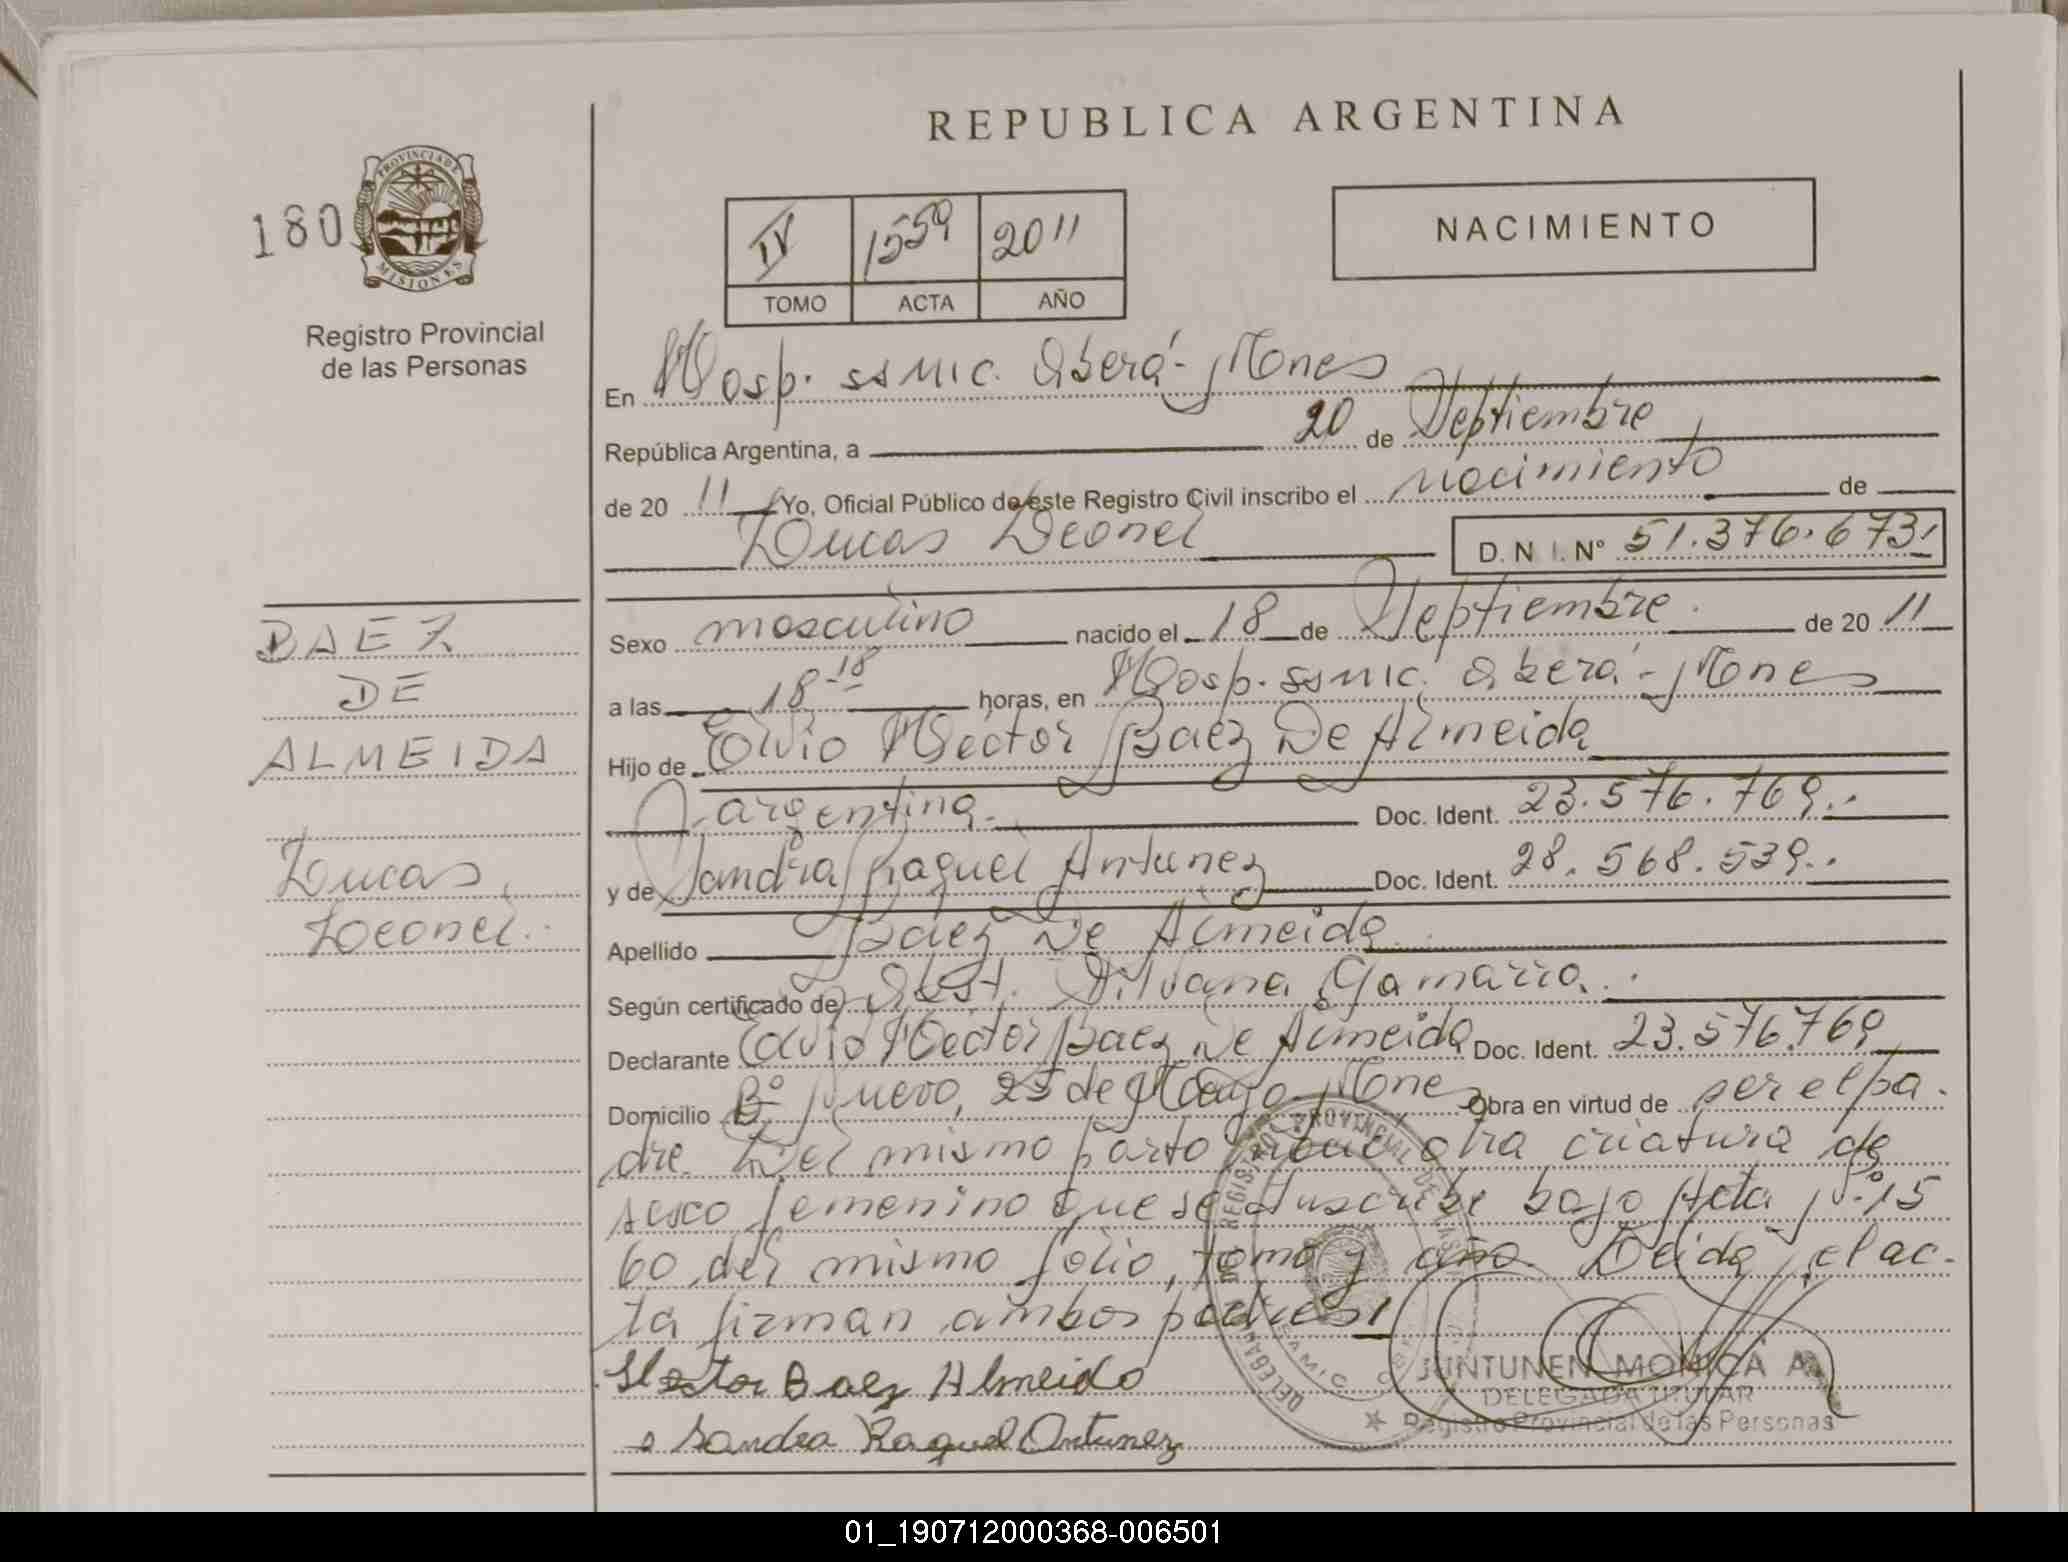 REPUBLICA ARGENTINA
180
PROVINCIA DE
MISIONES
Registro Provincial
de las Personas
IV 1559 2011
TOMO ACTA AÑO
NACIMIENTO
En Hosp. ssmic. Oberá - Mones
República Argentina, a 20 de Septiembre
de 20 11 Yo, Oficial Público de este Registro Civil inscribo el nacimiento de
Lucas Leonel D.N.I. Nº 51.376.673
Sexo masculino nacido el 18 de Septiembre de 20 11
a las 18-18 horas, en Hosp. ssmic. Oberá - Mones
Hijo de Elvio Hector Baez De Almeida
argentina Doc. Ident. 23.576.769
y de Sandra Raquel Antunez Doc. Ident. 28.568.539
Apellido Baez De Almeida
Según certificado de Obst. Silvana Gamarra
Declarante Elvio Hector Baez De Almeida Doc. Ident. 23.576.769
Domicilio Bº Nuevo, 25 de Mayo - Mones Obra en virtud de ser el pa-
dre. Del mismo parto nació otra criatura de
sexo femenino que se inscribe bajo Acta Nº 15
60 del mismo folio, tomo y año. Leida el ac-
ta firman ambos padres
Hector Baez Almeida
Sandra Raquel Antunez
BAEZ
DE
ALMEIDA
Lucas
Leonel
JUNTUNEN MONICA A.
DELEGADA TITULAR
Registro Provincial de las Personas
01_190712000368-006501